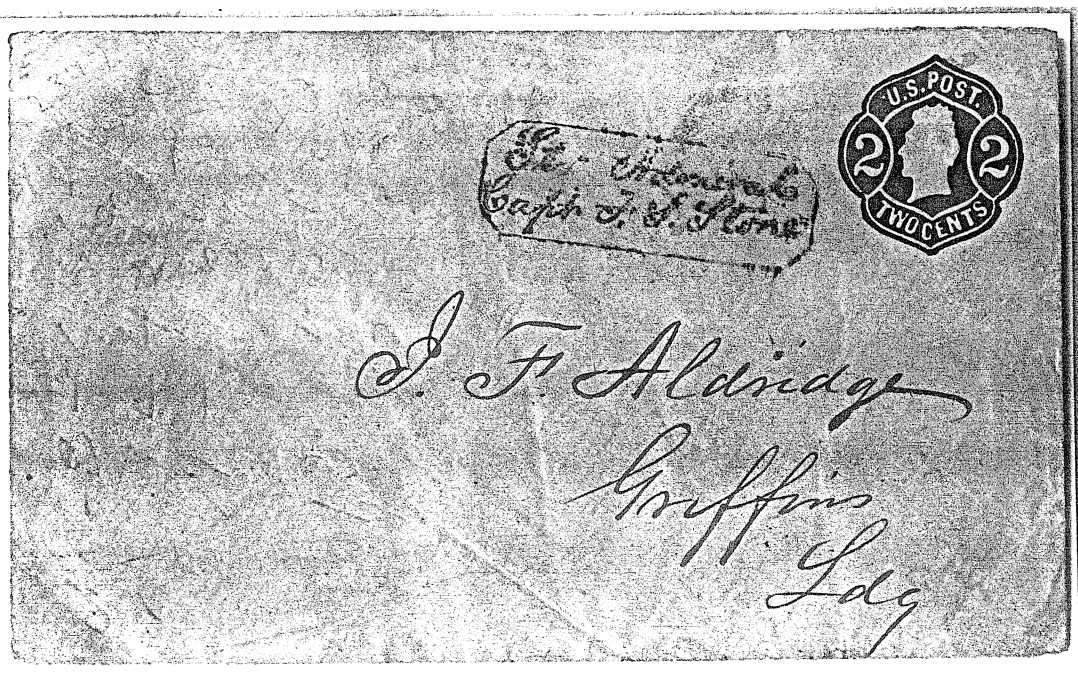 U.S. POST.
2 2
TWO CENTS
Str. Admiral
Capt. J. S. Stone
J. F. Aldridge
Griffins
Ldg